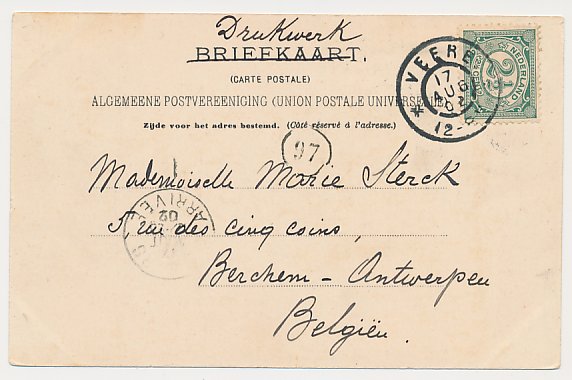 Drukwerk
BRIEFKAART.
(CARTE POSTALE)
ALGEMEENE POSTVEREENIGING (UNION POSTALE UNIVERSELLE)
Zijde voor het adres bestemd. (Côté réservé à l'adresse.)
VEERE
17 AUG 02
12-
NEDERLAND
2½
CENT
97
Mademoiselle Marie Sterck
5 rue des cinq coins,
Berchem-Antwerpen
België.
ARRIVÉE
02